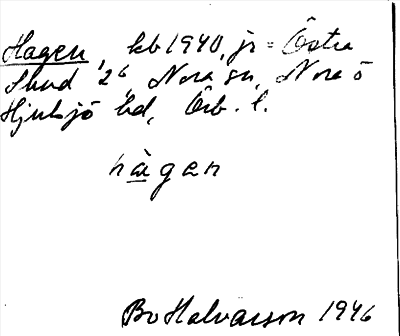 Hagen, kb 1940, jr = Östra
Sund 2⁶, Nora sn, Nora ö
Hjulsjö bd, Örb. l.
hàgen
Bo Halvarson 1946